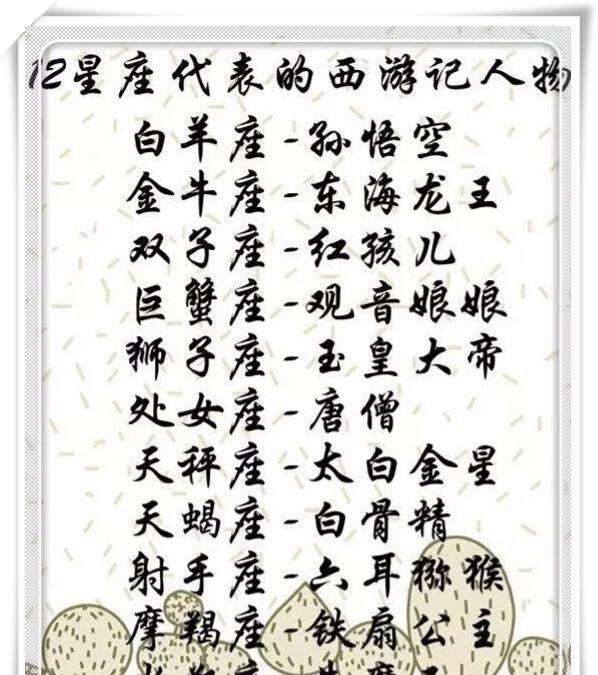 12星座代表的西游记人物
白羊座-孙悟空
金牛座-东海龙王
双子座-红孩儿
巨蟹座-观音娘娘
狮子座-玉皇大帝
处女座-唐僧
天秤座-太白金星
天蝎座-白骨精
射手座-六耳猕猴
摩羯座-铁扇公主